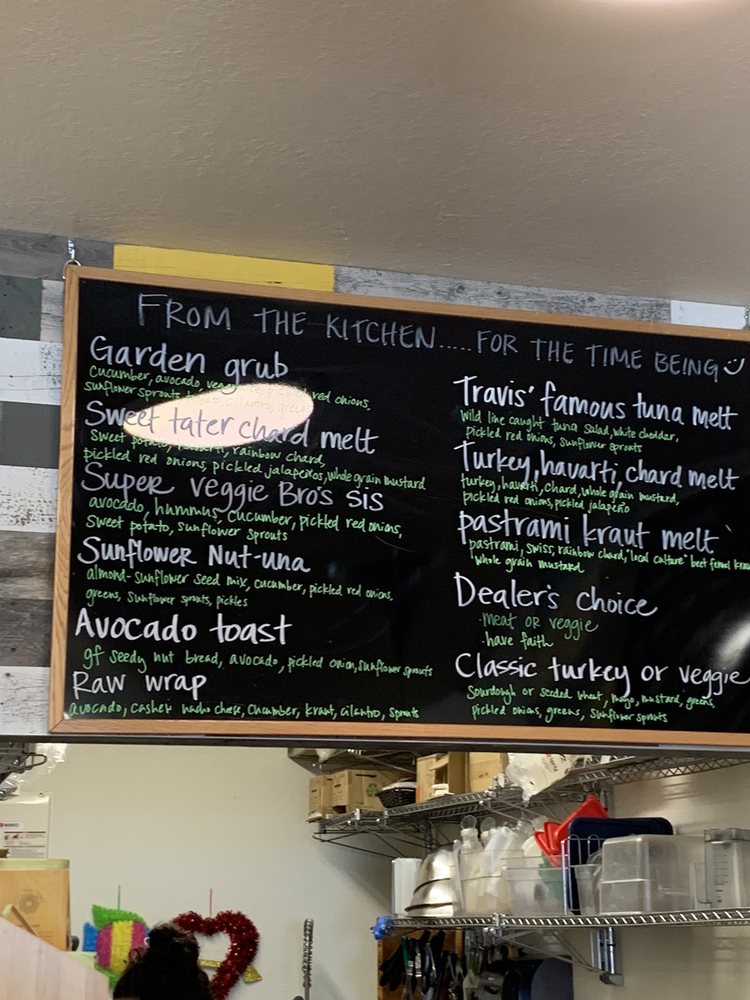 FROM THE KITCHEN..... FOR THE TIME BEING
Garden grub
cucumber, avocado, red onions,
sunflower sprouts, cilantro, greens
Sweet tater chard melt
sweet potato, havarti, rainbow chard,
pickled red onions, pickled jalapeños, whole grain mustard
Super veggie Bro's sis
avocado, hummus, cucumber, pickled red onions,
sweet potato, sunflower sprouts
Sunflower Nut-una
almond-sunflower seed mix, cucumber, pickled red onions,
greens, sunflower sprouts, pickles
Avocado toast
gf seedy nut bread, avocado, pickled onion, sunflower sprouts
Raw wrap
avocado, cashew nacho cheese, cucumber, kraut, cilantro, sprouts
Travis' famous tuna melt
wild line caught tuna salad, white cheddar,
pickled red onions, sunflower sprouts
Turkey, havarti, chard melt
turkey, havarti, chard, whole grain mustard,
pickled red onions, pickled jalapeño
pastrami kraut melt
pastrami, swiss, rainbow chard, "local culture" beet fennel
whole grain mustard
Dealer's choice
·meat or veggie
·have faith
Classic turkey or veggie
Sourdough or seeded wheat, mayo, mustard, greens,
pickled onions, greens, sunflower sprouts